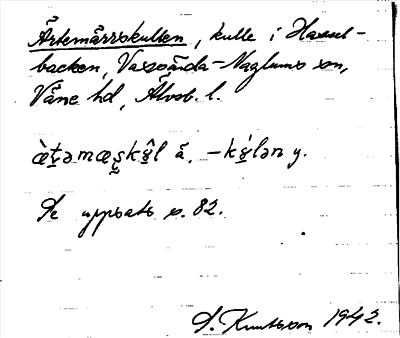 Ärtemärrskullen, kulle i Hassel-
backen, Vassända-Naglums sn,
Väne hd, Älvsb. l.
ä. y.
Se uppsats s. 82.
S. Knutsson 1942.